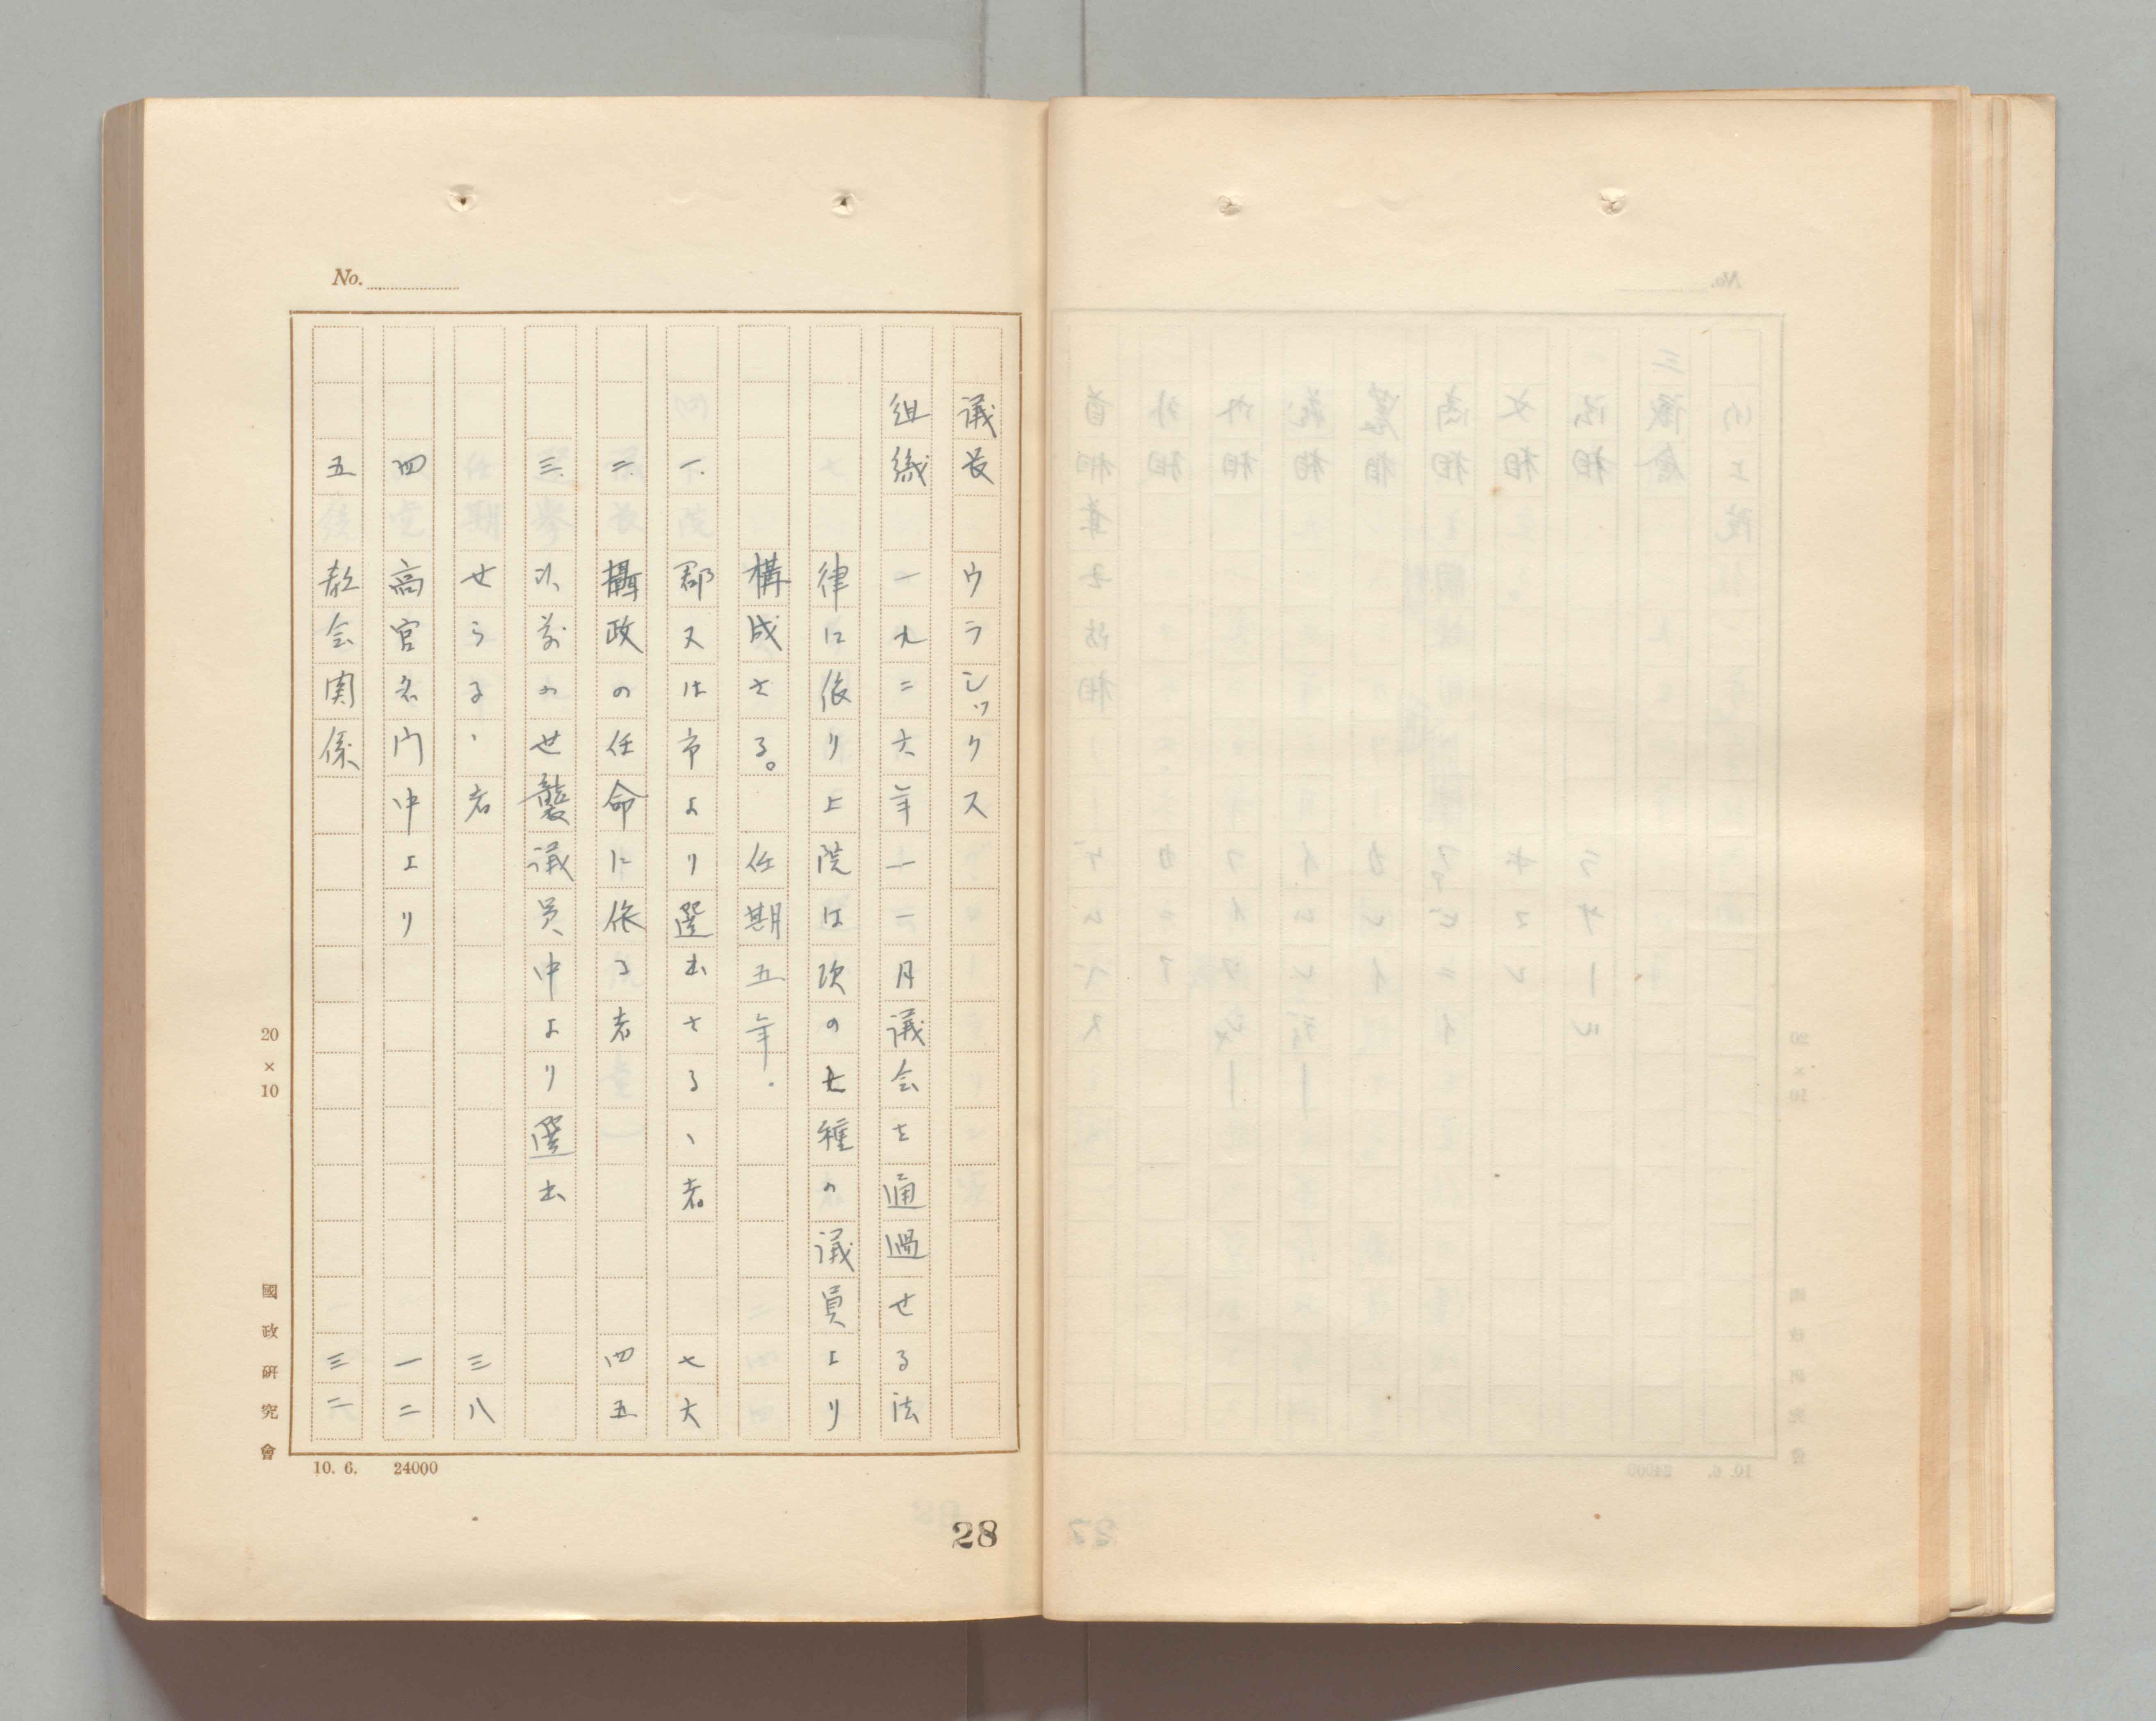 No.
議長　ウラシックス
組織　一九二六年一一月議会を通過せる法
律に依り上院は次の七種の議員より
構成さる。任期五年.
一.　郡又は市より選出さるゝ者。　七六
二　攝政の任命に依る者　四五
三.　以前のせ襲議員中より選出
せらるゝ者　三八
四　高官名門中より　一二
五　教会関係　三二
20×10
國政研究會
10. 6.　24000
28